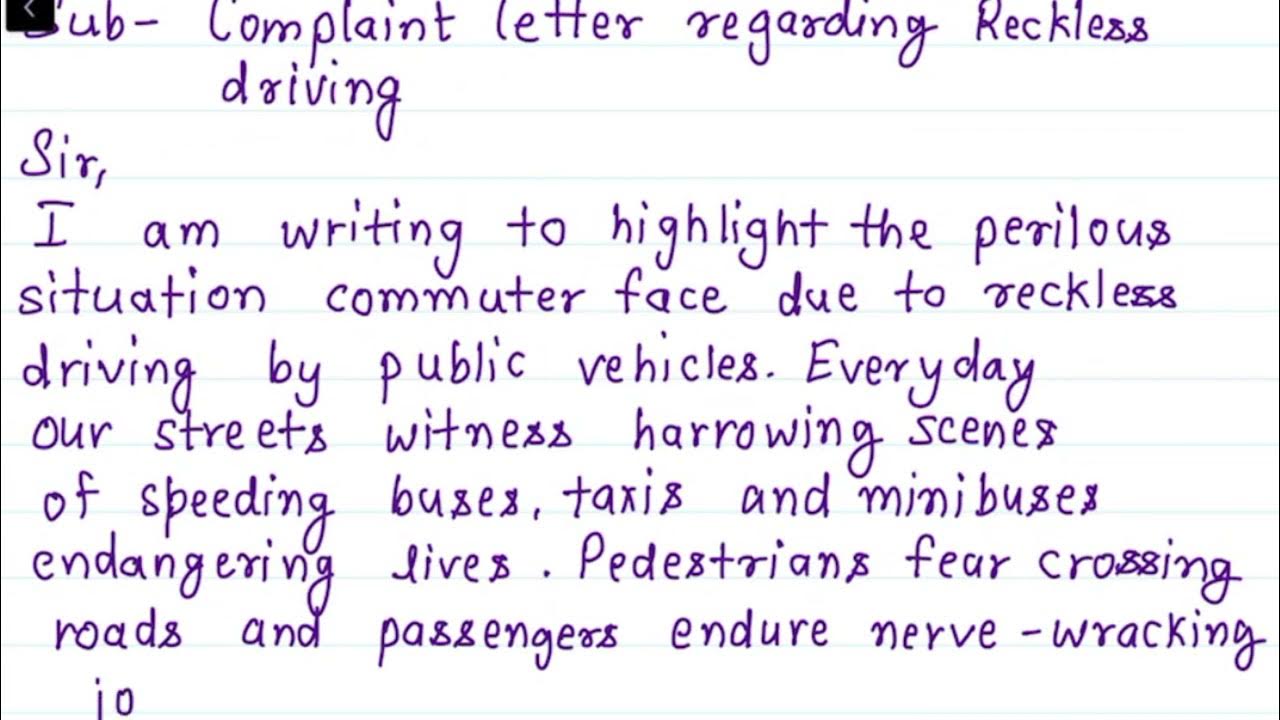 Sub- Complaint letter regarding Reckless
driving
Sir,
I am writing to highlight the perilous
situation commuter face due to reckless
driving by public vehicles. Everyday
our streets witness harrowing scenes
of speeding buses, taxis and minibuses
endangering lives. Pedestrians fear crossing
roads and passengers endure nerve-wracking
jo